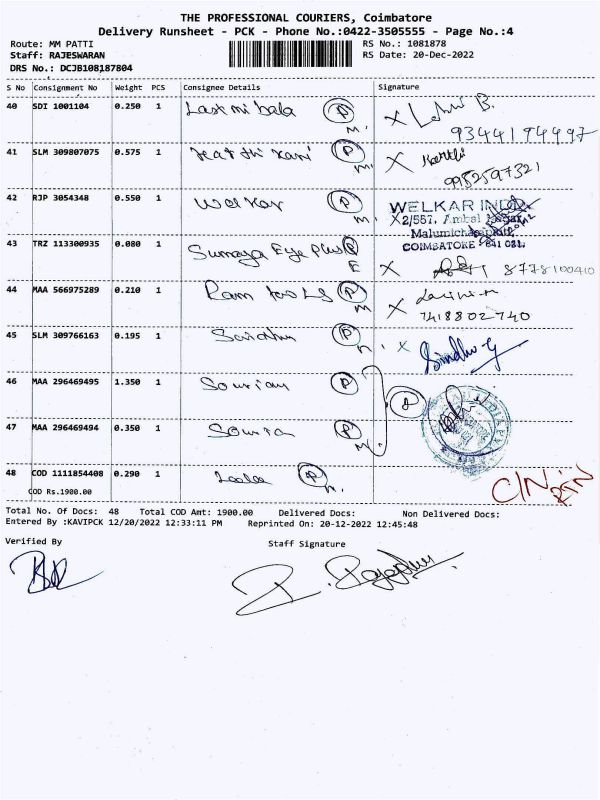 THE PROFESSIONAL COURIERS, Coimbatore
Delivery Runsheet - PCK - Phone No.:0422-3505555 - Page No.:4
Route: MM PATTI RS No.: 1081878
Staff: RAJESWARAN RS Date: 20-Dec-2022
DRS No.: DCJB108187804
S No Consignment No Weight PCS Consignee Details Signature
40 SDI 1001104 0.250 1 Laxmi bala P M.
9344194497
41 SLM 309807075 0.575 1 P M.
9952597321
42 RJP 3054348 0.550 1 P M.
WELKAR
2/557,
COIMBATORE
43 TRZ 113300935 0.080 1 Sumaya Eye Plus P E
8778100410
44 MAA 566975289 0.210 1 Ram P M
7418802740
45 SLM 309766163 0.195 1 P
Sindhu-G
46 MAA 296469495 1.350 1 P
47 MAA 296469494 0.350 1 P M
48 COD 1111854408 0.290 1 P
C/N
COD Rs.1900.00
Total No. Of Docs: 48 Total COD Amt: 1900.00 Delivered Docs: Non Delivered Docs:
Entered By :KAVIPCK 12/20/2022 12:33:11 PM Reprinted On: 20-12-2022 12:45:48
Verified By Staff Signature